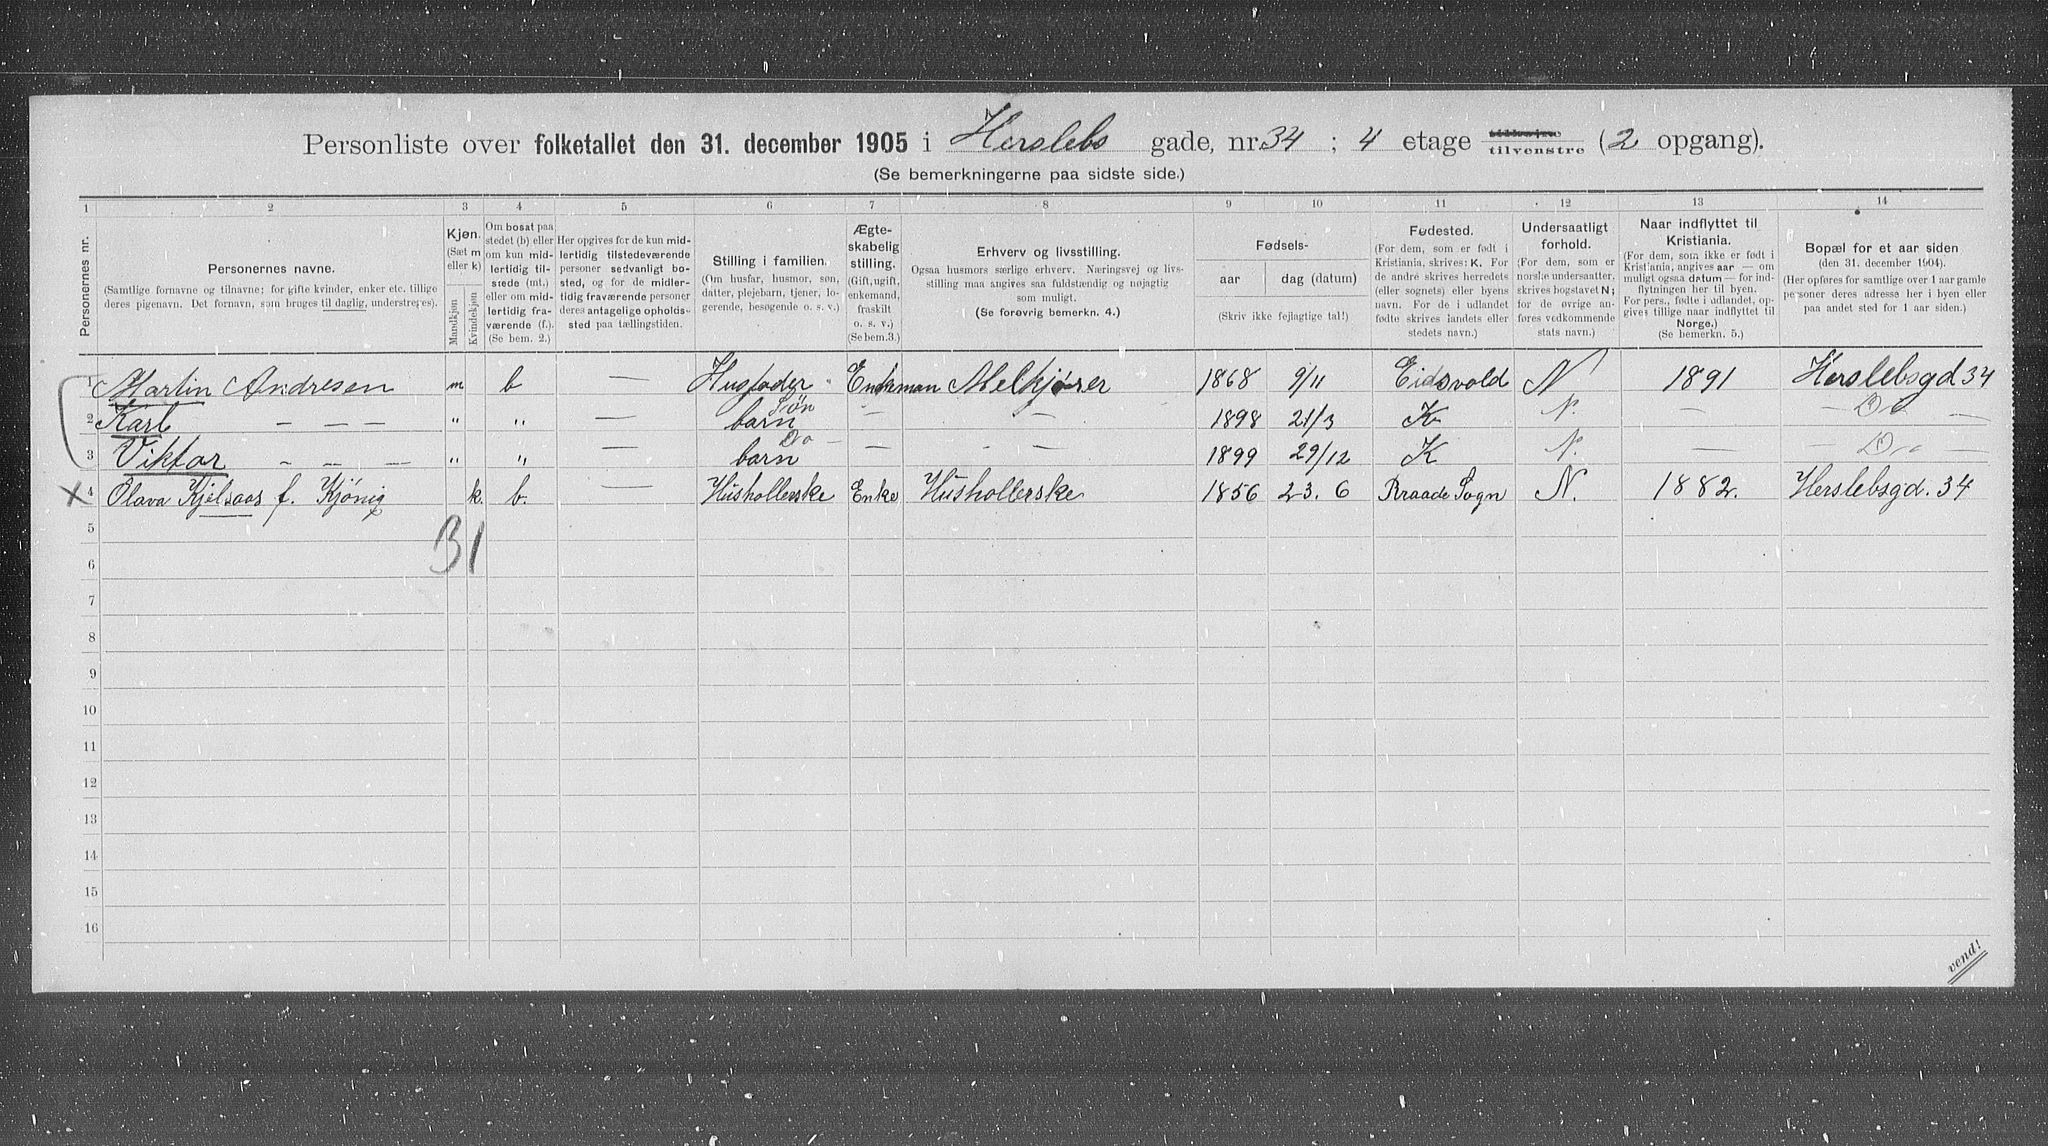 Personliste over folketallet den 31. december 1905 i Herslebs gade, nr. 34 ; 4 etage tilvenstre (2 opgang).
(Se bemerkningerne paa sidste side.)
1 2 3 4 5 6 7 8 9 10 11 12 13 14
Personernes nr.
Personernes navne.
(Samtlige fornavne og tilnavne; for gifte kvinder, enker etc. tillige
deres pigenavn. Det fornavn, som bruges til daglig, understreges).
Kjøn.
(Sæt m
eller k)
Mandkjøn
Kvindekjøn
Om bosat paa
stedet (b) eller
om kun mid-
lertidig til-
stede (mt.)
eller om mid-
lertidig fra-
værende (f.).
(Se bem. 2.)
Her opgives for de kun mid-
lertidig tilstedeværende
personer sedvanligt bo-
sted, og for de midler-
tidig fraværende personer
deres antagelige opholds-
sted paa tællingstiden.
Stilling i familien.
(Om husfar, husmor, søn,
datter, plejebarn, tjener, lo-
gerende, besøgende o. s. v.)
Ægte-
skabelig
stilling.
(Gift, ugift,
enkemand,
fraskilt
o. s. v.)
(Se bem. 3.)
Erhverv og livsstilling.
Ogsaa husmors særlige erhverv. Næringsvej og livs-
stilling maa angives saa fuldstændig og nøjagtig
som muligt.
(Se forøvrig bemerkn. 4.)
Fødsels-
aar dag (datum)
(Skriv ikke fejlagtige tal!)
Fødested.
(For dem, som er født i
Kristiania, skrives: K. For
de andre skrives herredets
(eller sognets) eller byens
navn. For de i udlandet
fødte skrives landets eller
stedets navn.)
Undersaatligt
forhold.
(For dem, som er
norske undersaatter,
skrives bogstavet N;
for de øvrige an-
føres vedkommende
stats navn.)
Naar indflyttet til
Kristiania.
(For dem, som ikke er født i
Kristiania, angives aar — om
muligt ogsaa datum — for ind-
flytningen her til byen.
For pers., fødte i udlandet, op-
gives tillige naar indflyttet til
Norge.)
(Se bemerkn. 5.)
Bopæl for et aar siden
(den 31. december 1904).
(Her opføres for samtlige over 1 aar gamle
personer deres adresse her i byen eller
paa andet sted for 1 aar siden.)
1 Martin Andresen m b — Husfader Enkman Melkjører 1868 9/11 Eidsvold N 1891 Herslebsgd 34
2 Karl — — — " " — barn Søn — — 1898 21/3 K N. — — Do —
3 Viktor — — — " " — barn Do — — — — 1899 29/12 K N. — — Do —
X 4 Olava Kjelsaas f. Kjönig k. b. — Hushollerske Enke Hushollerske 1856 23. 6 Raade Sogn N. 1882. Herslebsgd. 34
5
31
6
7
8
9
10
11
12
13
14
15
16
vend!